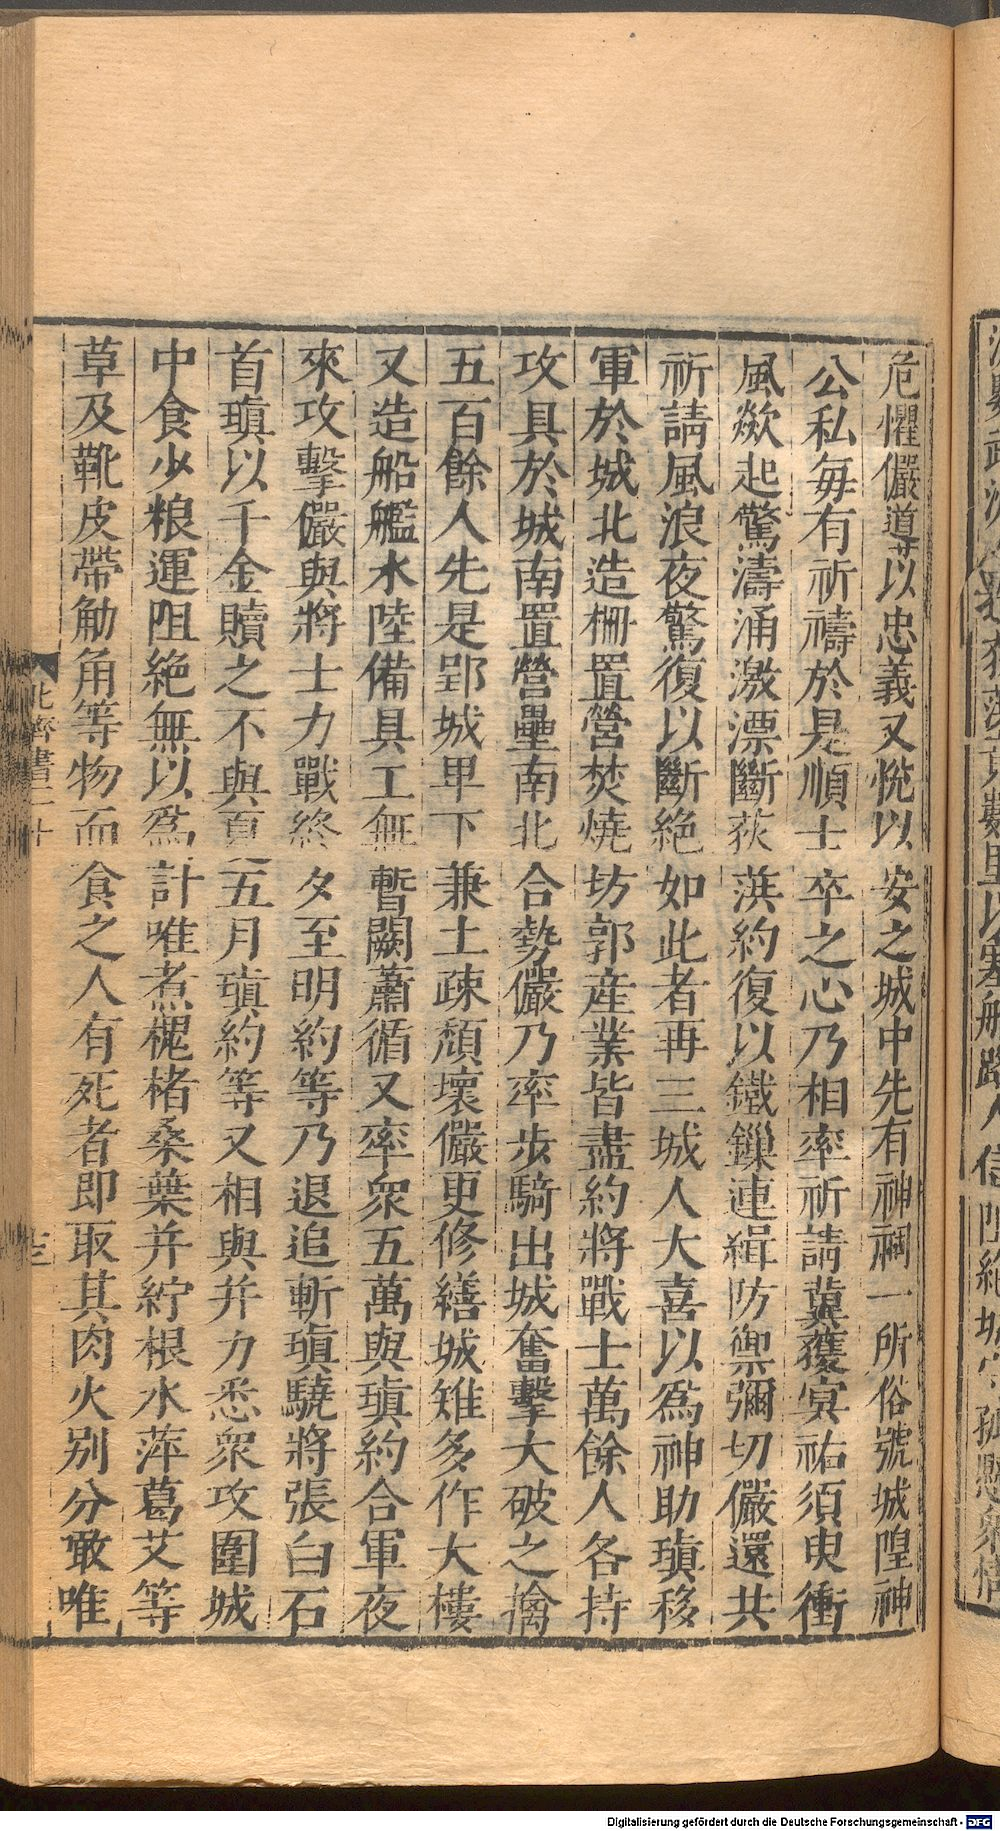 危懼儼導以忠義又悅以安之城中先有神祠一所俗號城隍神
公私每有祈禱於是順士卒之心乃相率祈請冀獲㝠祐須臾衝
風欻起驚濤涌激漂斷荻葓約復以鐵鏁連緝防禦彌切儼還共
祈請風浪夜驚復以斷絶如此者再三城人大喜以爲神助瑱移
軍於城北造柵置營焚燒坊郭産業皆盡約將戰士萬餘人各持
攻具於城南置營壘南北合勢儼乃率步騎出城奮擊大破之擒
五百餘人先是郢城卑下兼土疎頹壞儼更修繕城雉多作大樓
又造船艦水陸備具工無暫闕蕭循又率衆五萬與瑱約合軍夜
來攻擊儼與將士力戰終夕至明約等乃退追斬瑱驍將張白石
首瑱以千金贖之不與夏五月瑱約等又相與并力悉衆攻圍城
中食少粮運阻絶無以爲計唯煮槐楮桑葉并紵根水萍葛艾等
草及靴皮帶觔角等物而食之人有死者即取其肉火别分噉唯
北齊書二十
十三
Digitalisierung gefördert durch die Deutsche Forschungsgemeinschaft - DFG